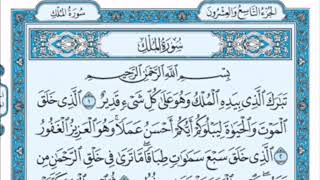 الجزء التاسع والعشرون
سورة الملك
سُورَةُ الْمُلْكِ
بِسْمِ اللَّهِ الرَّحْمَٰنِ الرَّحِيمِ
تَبَٰرَكَ الَّذِي بِيَدِهِ الْمُلْكُ وَهُوَ عَلَىٰ كُلِّ شَيْءٍ قَدِيرٌ ١ الَّذِي خَلَقَ
الْمَوْتَ وَالْحَيَوٰةَ لِيَبْلُوَكُمْ أَيُّكُمْ أَحْسَنُ عَمَلًا وَهُوَ الْعَزِيزُ الْغَفُورُ
٢ الَّذِي خَلَقَ سَبْعَ سَمَٰوَٰتٍ طِبَاقًا مَّا تَرَىٰ فِي خَلْقِ الرَّحْمَٰنِ مِن